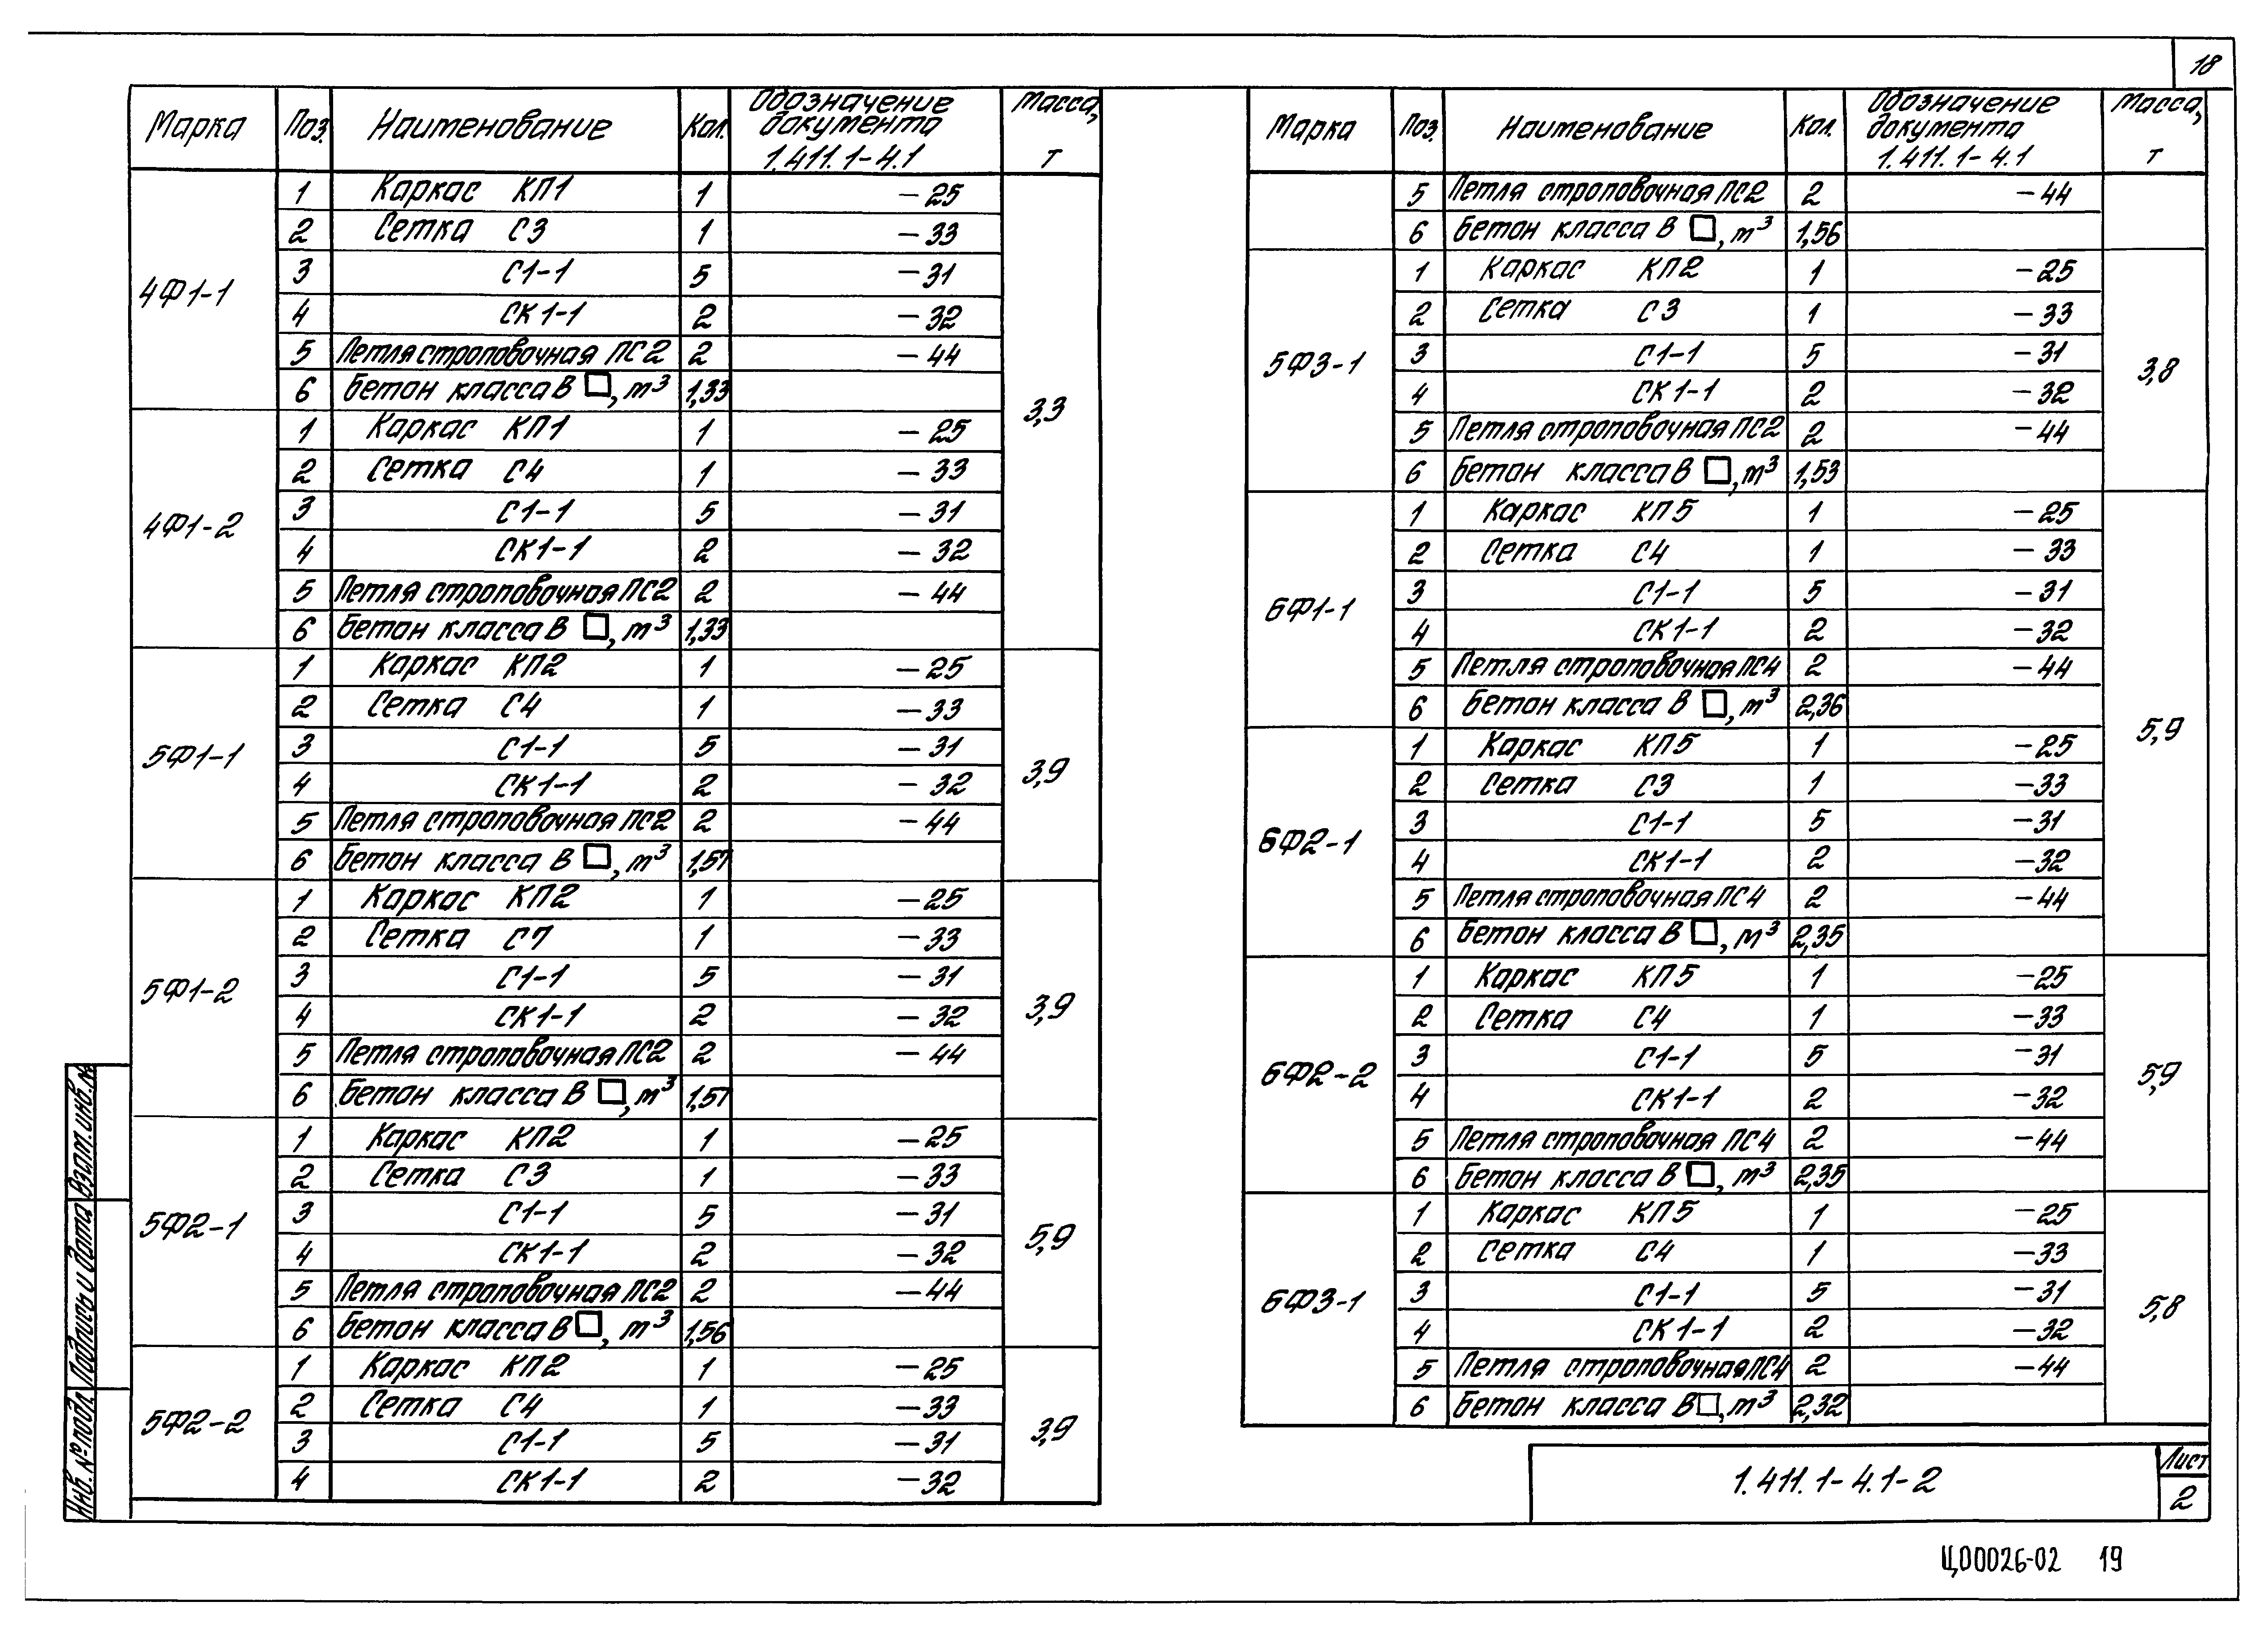 18
Марка Поз. Наименование Кол. Обозначение документа 1.411.1-4.1 Масса, т
4Ф1-1
1 Каркас КП1 1 -25
2 Сетка С3 1 -33
3 С1-1 5 -31
4 СК1-1 2 -32
5 Петля строповочная ПС2 2 -44
6 Бетон класса В □, м³ 1,33
3,3
4Ф1-2
1 Каркас КП1 1 -25
2 Сетка С4 1 -33
3 С1-1 5 -31
4 СК1-1 2 -32
5 Петля строповочная ПС2 2 -44
6 Бетон класса В □, м³ 1,33
5Ф1-1 3,9
1 Каркас КП2 1 -25
2 Сетка С4 1 -33
3 С1-1 5 -31
4 СК1-1 2 -32
5 Петля строповочная ПС2 2 -44
6 Бетон класса В □, м³ 1,57
5Ф1-2 3,9
1 Каркас КП2 1 -25
2 Сетка С7 1 -33
3 С1-1 5 -31
4 СК1-1 2 -32
5 Петля строповочная ПС2 2 -44
6 Бетон класса В □, м³ 1,57
5Ф2-1 5,9
1 Каркас КП2 1 -25
2 Сетка С3 1 -33
3 С1-1 5 -31
4 СК1-1 2 -32
5 Петля строповочная ПС2 2 -44
6 Бетон класса В □, м³ 1,56
5Ф2-2 3,9
1 Каркас КП2 1 -25
2 Сетка С4 1 -33
3 С1-1 5 -31
4 СК1-1 2 -32
Марка Поз. Наименование Кол. Обозначение документа 1.411.1-4.1 Масса, т
5 Петля строповочная ПС2 2 -44
6 Бетон класса В □, м³ 1,56
5Ф3-1 3,8
1 Каркас КП2 1 -25
2 Сетка С3 1 -33
3 С1-1 5 -31
4 СК1-1 2 -32
5 Петля строповочная ПС2 2 -44
6 Бетон класса В □, м³ 1,53
6Ф1-1
1 Каркас КП5 1 -25
2 Сетка С4 1 -33
3 С1-1 5 -31
4 СК1-1 2 -32
5 Петля строповочная ПС4 2 -44
6 Бетон класса В □, м³ 2,36
5,9
6Ф2-1
1 Каркас КП5 1 -25
2 Сетка С3 1 -33
3 С1-1 5 -31
4 СК1-1 2 -32
5 Петля строповочная ПС4 2 -44
6 Бетон класса В □, м³ 2,35
6Ф2-2 5,9
1 Каркас КП5 1 -25
2 Сетка С4 1 -33
3 С1-1 5 -31
4 СК1-1 2 -32
5 Петля строповочная ПС4 2 -44
6 Бетон класса В □, м³ 2,35
6Ф3-1 5,8
1 Каркас КП5 1 -25
2 Сетка С4 1 -33
3 С1-1 5 -31
4 СК1-1 2 -32
5 Петля строповочная ПС4 2 -44
6 Бетон класса В □, м³ 2,32
Инв. № подл. Подпись и дата Взам. инв. №
1.411.1-4.1-2
Лист
2
Ц00026-02 19